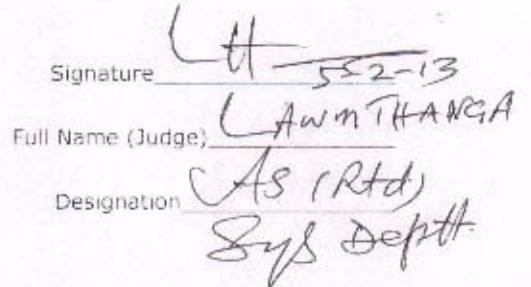 Signature LH
5-2-13
Full Name (Judge) LAWMTHANGA
Designation AS (Rtd)
Sys Deptt.